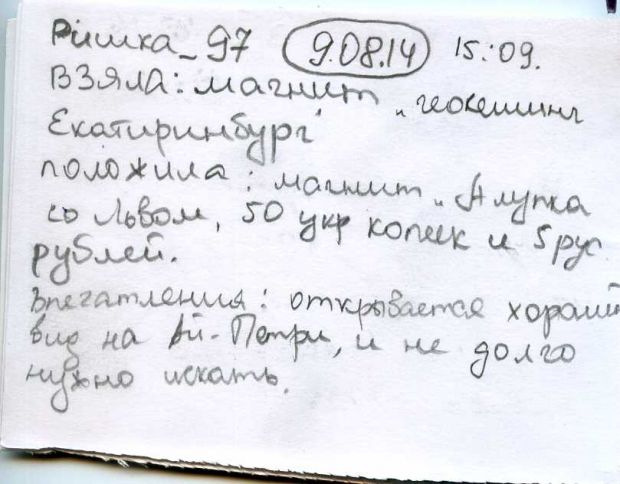 Ришка_97 9.08.14 15:09.
взяла: магнит „геокешинг
Екатиринбург"
положила: магнит „Алупка
со Львом, 50 укр копеек и 5 рус
рублей.
Впечатления: открывается хороший
вид на Ай-Петри, и не долго
нужно искать.